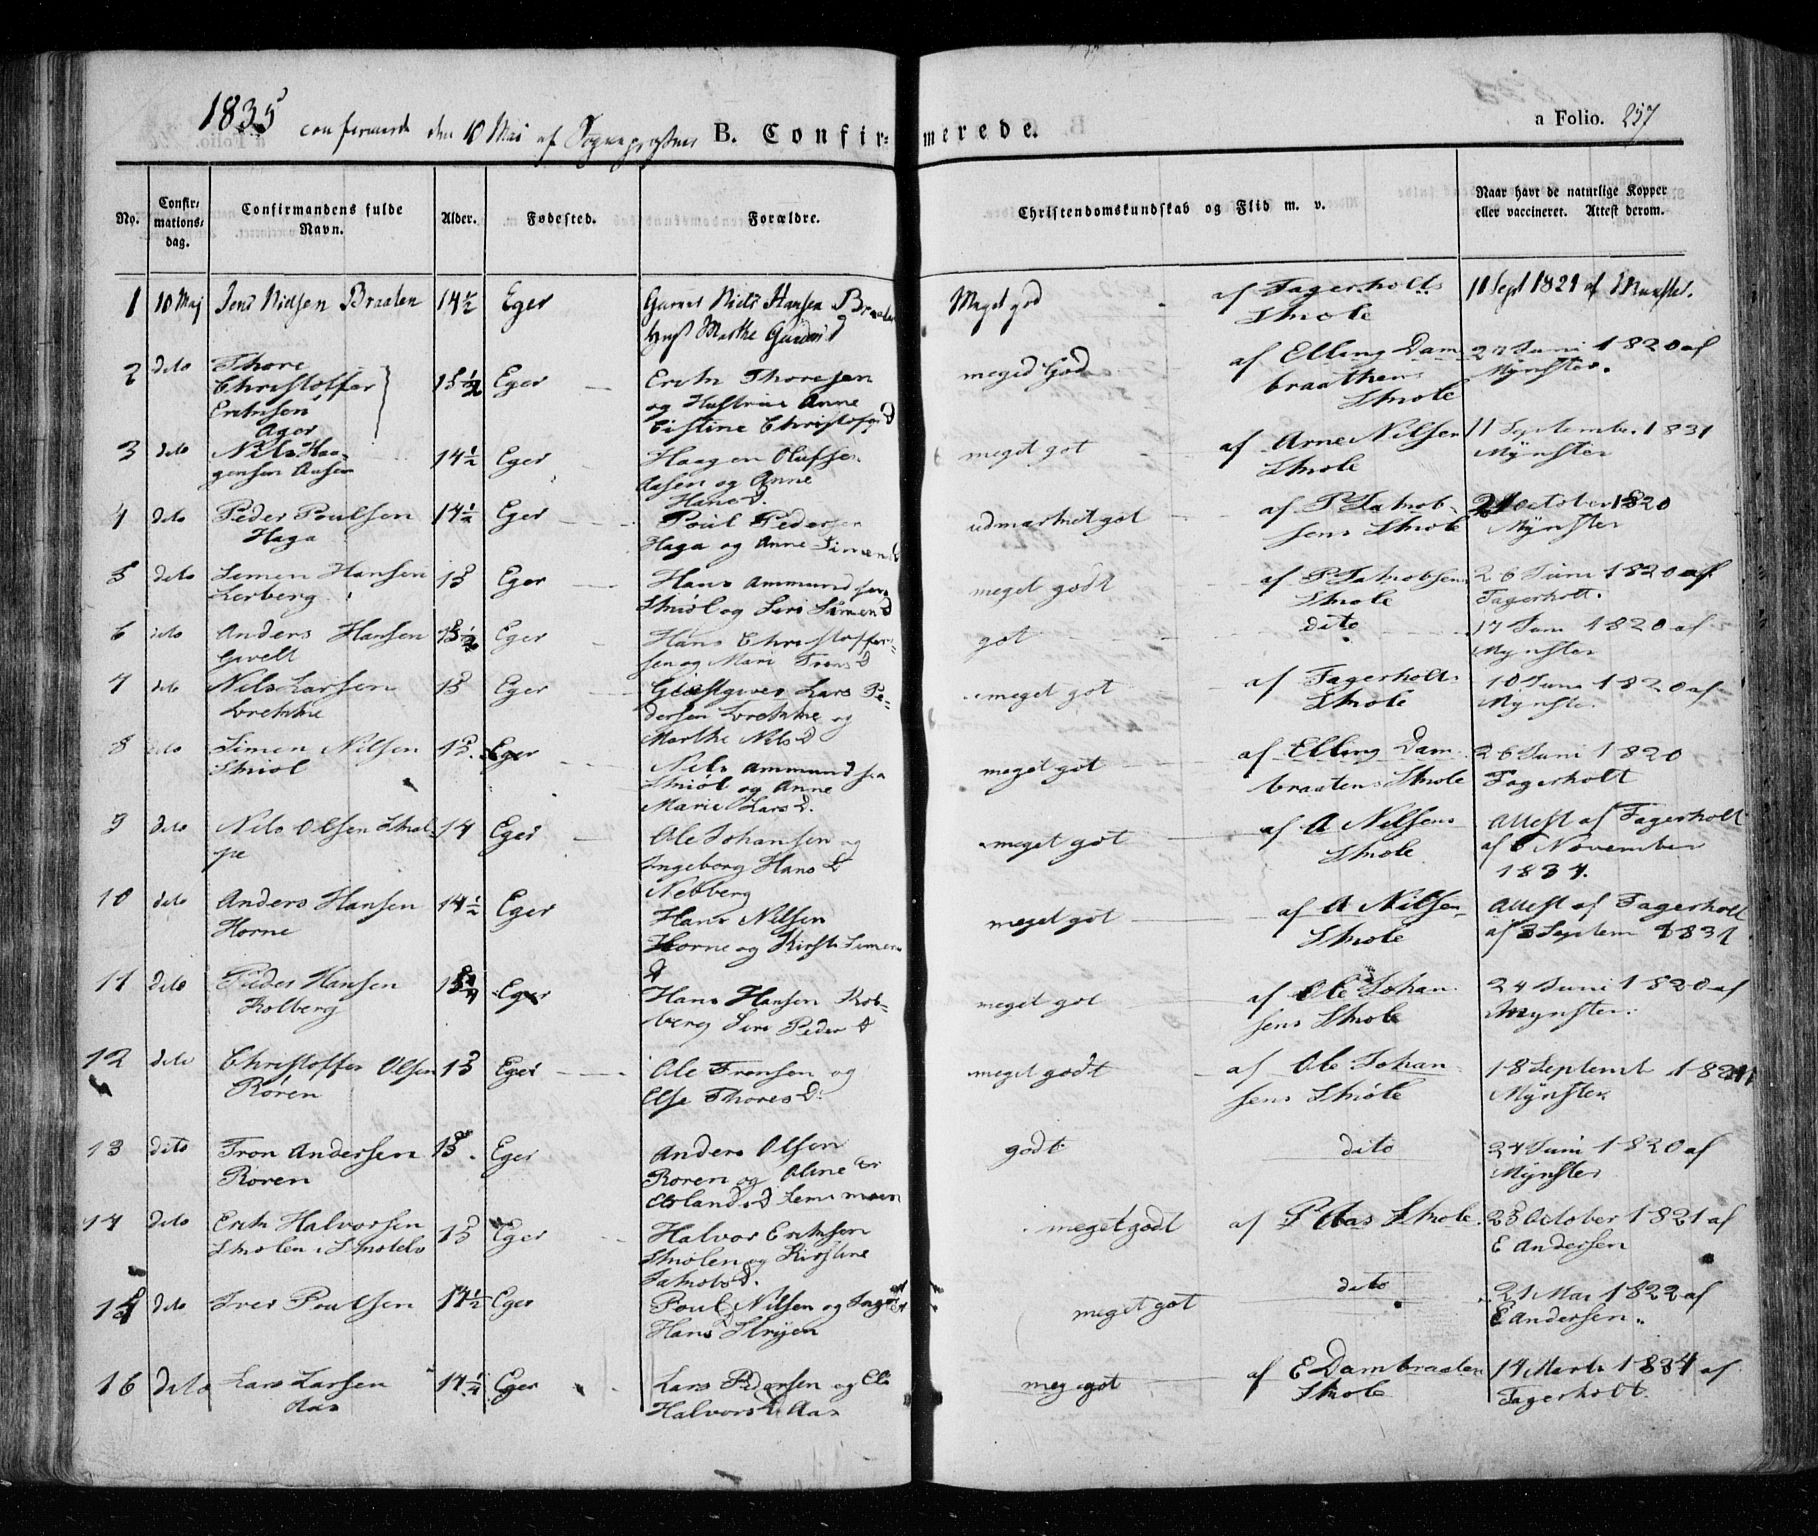 1835 confirmerede den 10 Mai af Sognepræsten B. Confirmerede. a Folio. 257
No. Confirmationsdag. Confirmandens fulde Navn. Alder. Fødested. Forældre. Christendomskundskab og Flid m. v. Naar havt de naturlige Kopper eller vaccineret. Attest derom.
1 10 Maj Jens Nielsen Braaten 14½ Eger Niels Hansen Braaten Marthe Meget god af Fagerholts Skole Sept 1821 af
2 dito Thore Christoffer Eriksen Ager 15½ Eger Erik Thoresen og Hustrue Anne Cistine Christofers D meged God af Elling Dambraathens Skole 24 Juni 1820 af Mynster.
3 dito Nils Haagensen Aasen 14½ Eger Haagen Olufsen Aasen og Anne Hans D. meget got af Arne Nilsens Skole 11 Septemb. 1831 Mynster
4 dito Peder Poulsen Haga 14½ Eger Poul Pedersen Haga og Anne Simens D udmærket got af P Jakobsens Skole October 1820 Mynster
5 dito Simen Hansen Lerberg 15 Eger Hans Ammundsen Skiøl og Siri Simens D meget godt af P Jakobsens Skole 26 Juni 1820 af Fagerholt.
6 dito Anders Hansen 15½ Eger Hans Christoffersen og Mari Trons D got dito 17 Juni 1820 af Mynster
7 dito Nils Larsen Brekke 15 Eger Giæstgiver Lars Pedersen Brekke og Marthe Nils D meget got af Fagerholts Skole 10 Juni 1820 af Mynster.
8 dito Simen Nilsen Skiøl 15. Eger Nils Ammundsen Skiøl og Anne Marie Lars D. meget got af Elling Dambraatens Skole 26 Juni 1820 Fagerholt
9 dito Nils Olsen 14 Eger Ole Johansen og Ingeborg Hans D Nebberg meget got af A Nilsens Skole Attest af Fagerholt af November 1834.
10 dito Anders Hansen Horne 14½ Eger Hans Nilsen Horne og Kirsti Simens D meget got af A Nilsens Skole Attest af Fagerholt af 3 Septem
11 dito Peder Hansen Kolberg 15¼ Eger Hans Hansen Kolberg Siri Peders D meget got af Ole Johansens Skole 24 Juni 1820 af Mynster.
12 dito Christoffer Olsen Røren 15 Eger Ole Tronsen og Else Thores D. meget godt af Ole Johansens Skole 18 Septemb Mynster
13 dito Tron Andersen Røren 15. Eger Anders Olsen Røren og Anne Erlands D godt dito 24 Juni 1820 af Mynster
14 dito Erik Halvorsen 15 Eger Halvor Eriksen og Kirstine Jakobs D. meget godt af P Aas Skole. 28 October 1821 af E Andersen
15 dito Iver Poulsen 14½ Eger Poul Nilsen og Hans D Strøjen meget got dito 21 Mai 1822 af E Andersen.
16 dito Lars Larsen Aas 14¼ Eger Lars Pedersen og Eli Halvors D Aas meg got af E Dambraaten Skole 14 Marts 1834 af Fagerholt